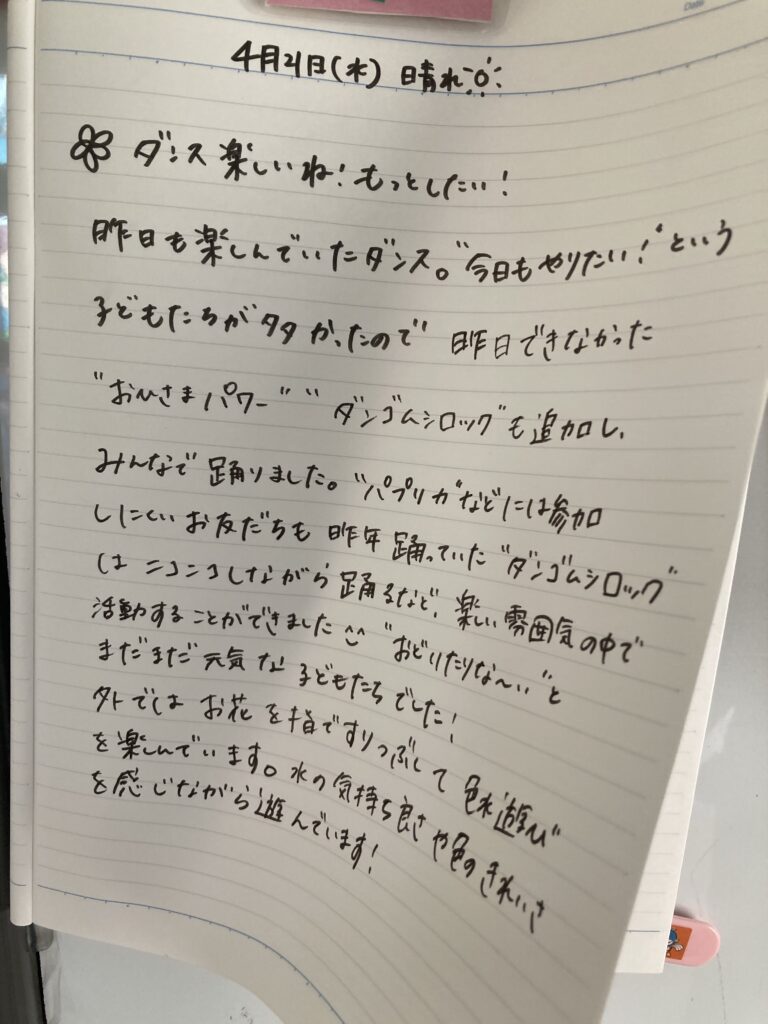 Date
4月21日(水) 晴れ
ダンス楽しいね!もっとしたい!
昨日も楽しんでいたダンス。"今日もやりたい!"という
子どもたちが多かったので 昨日できなかった
"おひさまパワー" "ダンゴムシロック"も追加し、
みんなで踊りました。"パプリカ"などには参加
しにくいお友だちも昨年踊っていた"ダンゴムシロック"
は ニコニコしながら踊るなど、楽しい雰囲気の中で
活動することができました^^ "おどりたりな〜い"と
まだまだ元気な子どもたちでした!
外では お花を指ですりつぶして 色水遊び
を楽しんでいます。水の気持ち良さや色のきれいさ
を感じながら遊んでいます!